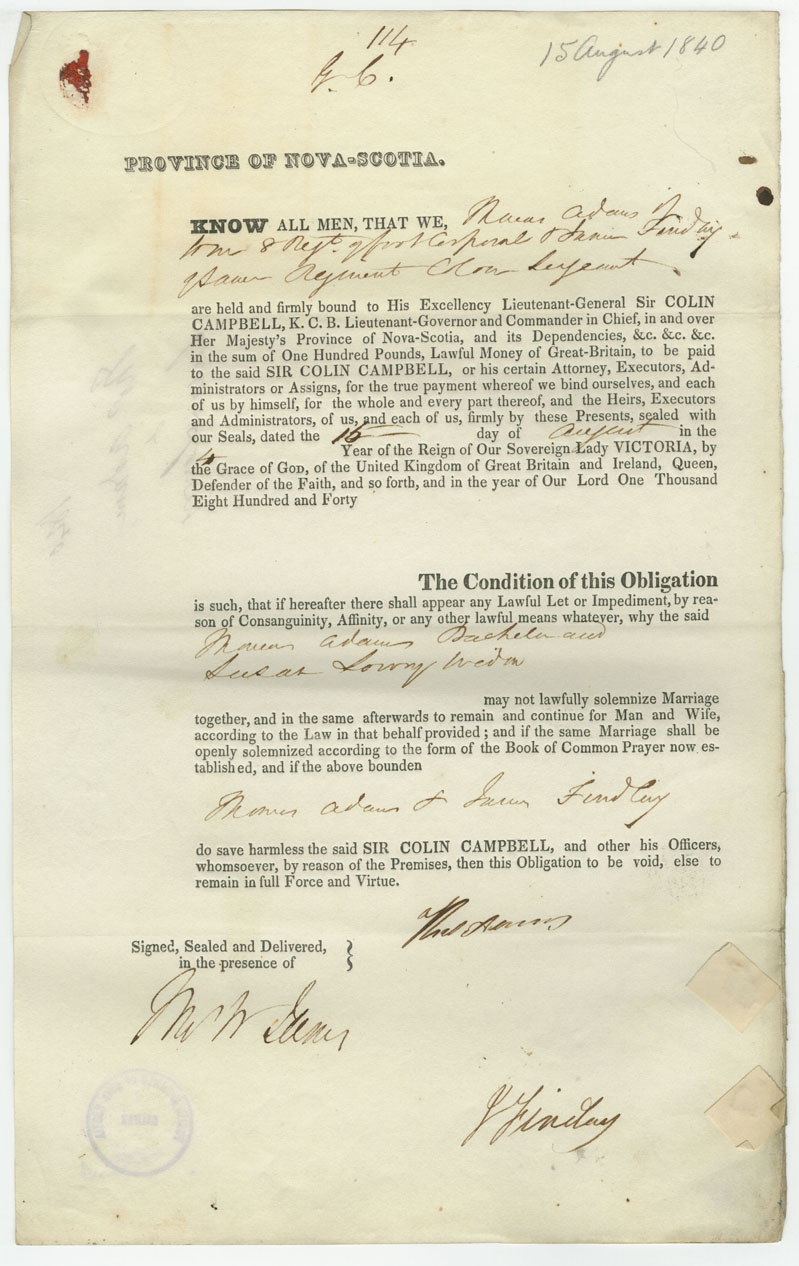 114
G. C.
15 August 1840
PROVINCE OF NOVA-SCOTIA.
KNOW ALL MEN, THAT WE, Thomas Adams of
8 Regt. of foot Corporal & James Findlay
of same Regiment Color Sergeant
are held and firmly bound to His Excellency Lieutenant-General Sir COLIN
CAMPBELL, K. C. B. Lieutenant-Governor and Commander in Chief, in and over
Her Majesty's Province of Nova-Scotia, and its Dependencies, &c. &c. &c.
in the sum of One Hundred Pounds, Lawful Money of Great-Britain, to be paid
to the said SIR COLIN CAMPBELL, or his certain Attorney, Executors, Ad-
ministrators or Assigns, for the true payment whereof we bind ourselves, and each
of us by himself, for the whole and every part thereof, and the Heirs, Executors
and Administrators, of us, and each of us, firmly by these Presents, sealed with
our Seals, dated the 15 day of August in the
4 Year of the Reign of Our Sovereign Lady VICTORIA, by
the Grace of GOD, of the United Kingdom of Great Britain and Ireland, Queen,
Defender of the Faith, and so forth, and in the year of Our Lord One Thousand
Eight Hundred and Forty
The Condition of this Obligation
is such, that if hereafter there shall appear any Lawful Let or Impediment, by rea-
son of Consanguinity, Affinity, or any other lawful means whatever, why the said
Thomas Adams Bachelor and
Susan Lowry Widow
may not lawfully solemnize Marriage
together, and in the same afterwards to remain and continue for Man and Wife,
according to the Law in that behalf provided; and if the same Marriage shall be
openly solemnized according to the form of the Book of Common Prayer now es-
tablished, and if the above bounden
Thomas Adams & James Findlay
do save harmless the said SIR COLIN CAMPBELL, and other his Officers,
whomsoever, by reason of the Premises, then this Obligation to be void, else to
remain in full Force and Virtue.
Thos Adams
Signed, Sealed and Delivered,
in the presence of
Thos W James
J Findlay